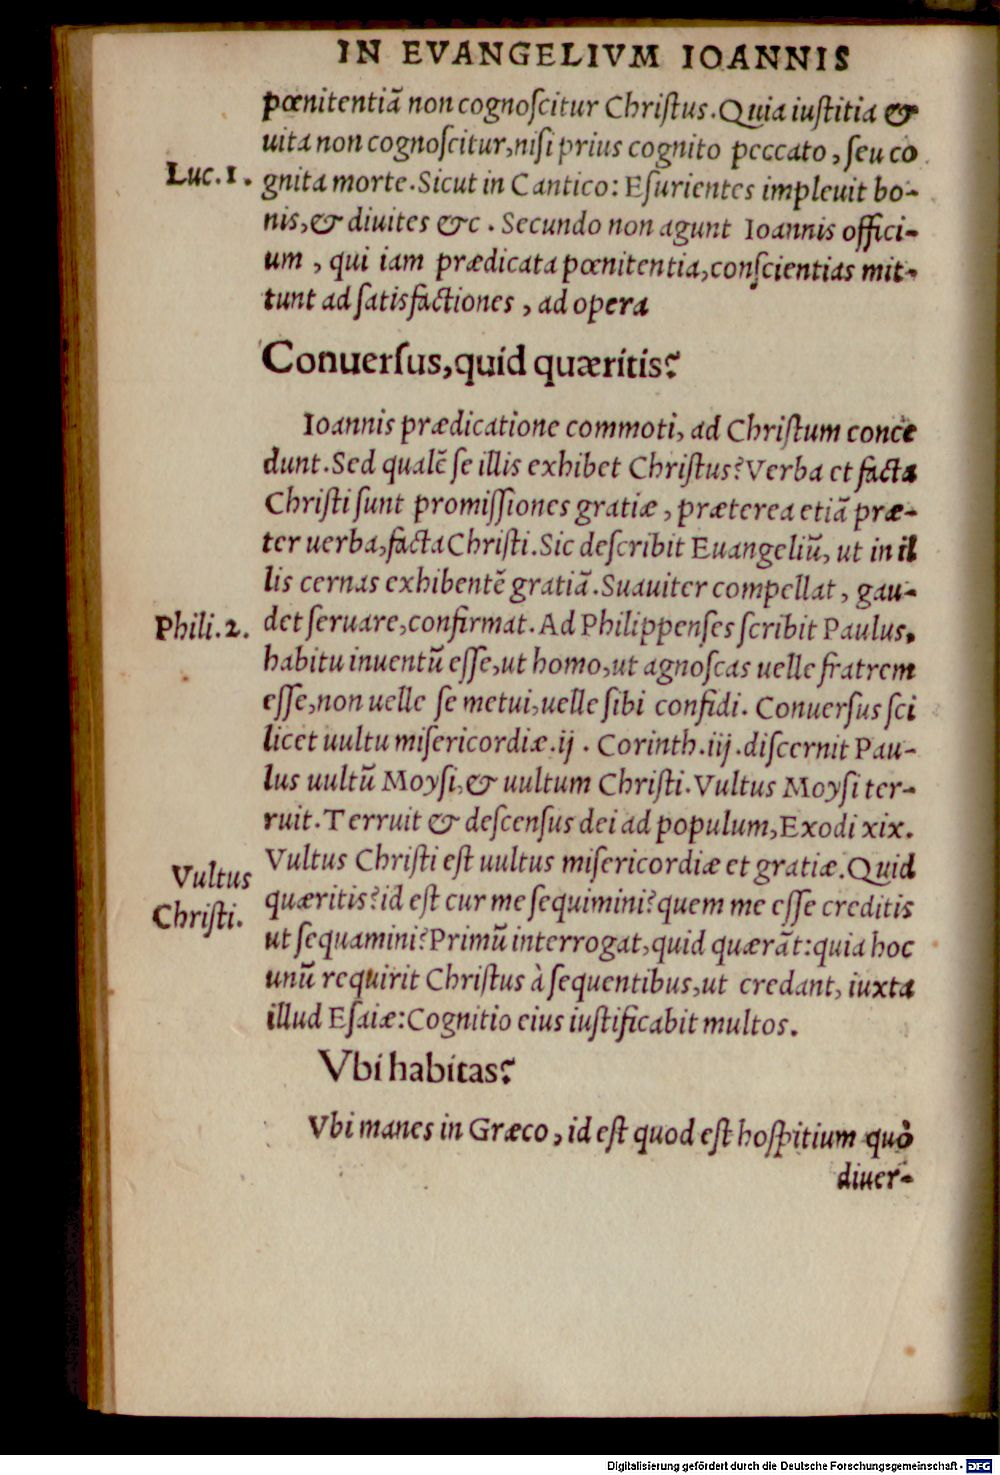 IN EVANGELIVM IOANNIS
pœnitentiã non cognoſcitur Chriſtus. Quia iuſtitia &
uita non cognoſcitur, niſi prius cognito peccato, ſeu co
Luc. 1.
gnita morte. Sicut in Cantico: Eſurientes impleuit bo-
nis, & diuites &c. Secundo non agunt Ioannis offici-
um, qui iam prædicata pœnitentia, conſcientias mit-
tunt ad ſatisfactiones, ad opera
Conuerſus, quid quæritis?
Ioannis prædicatione commoti, ad Chriſtum conce
dunt. Sed qualẽ ſe illis exhibet Chriſtus? Verba et facta
Chriſti ſunt promiſſiones gratiæ, præterea etiã præ-
ter uerba, facta Chriſti. Sic deſcribit Euangeliũ, ut in il
lis cernas exhibentẽ gratiã. Suauiter compellat, gau-
Phili. 2.
det ſeruare, confirmat. Ad Philippenſes ſcribit Paulus,
habitu inuentũ eſſe, ut homo, ut agnoſcas uelle fratrem
eſſe, non uelle ſe metui, uelle ſibi confidi. Conuerſus ſci
licet uultu miſericordiæ. ij. Corinth. iij. diſcernit Pau-
lus uultũ Moyſi, & uultum Chriſti. Vultus Moyſi ter-
ruit. Terruit & deſcenſus dei ad populum, Exodi xix.
Vultus
Chriſti.
Vultus Chriſti eſt uultus miſericordiæ et gratiæ. Quid
quæritis? id eſt cur me ſequimini? quem me eſſe creditis
ut ſequamini? Primũ interrogat, quid quærãt: quia hoc
unũ requirit Chriſtus à ſequentibus, ut credant, iuxta
illud Eſaiæ: Cognitio eius iuſtificabit multos.
Vbi habitas?
Vbi manes in Græco, id eſt quod eſt hoſpitium quò
diuer-
Digitalisierung gefördert durch die Deutsche Forschungsgemeinschaft - DFG